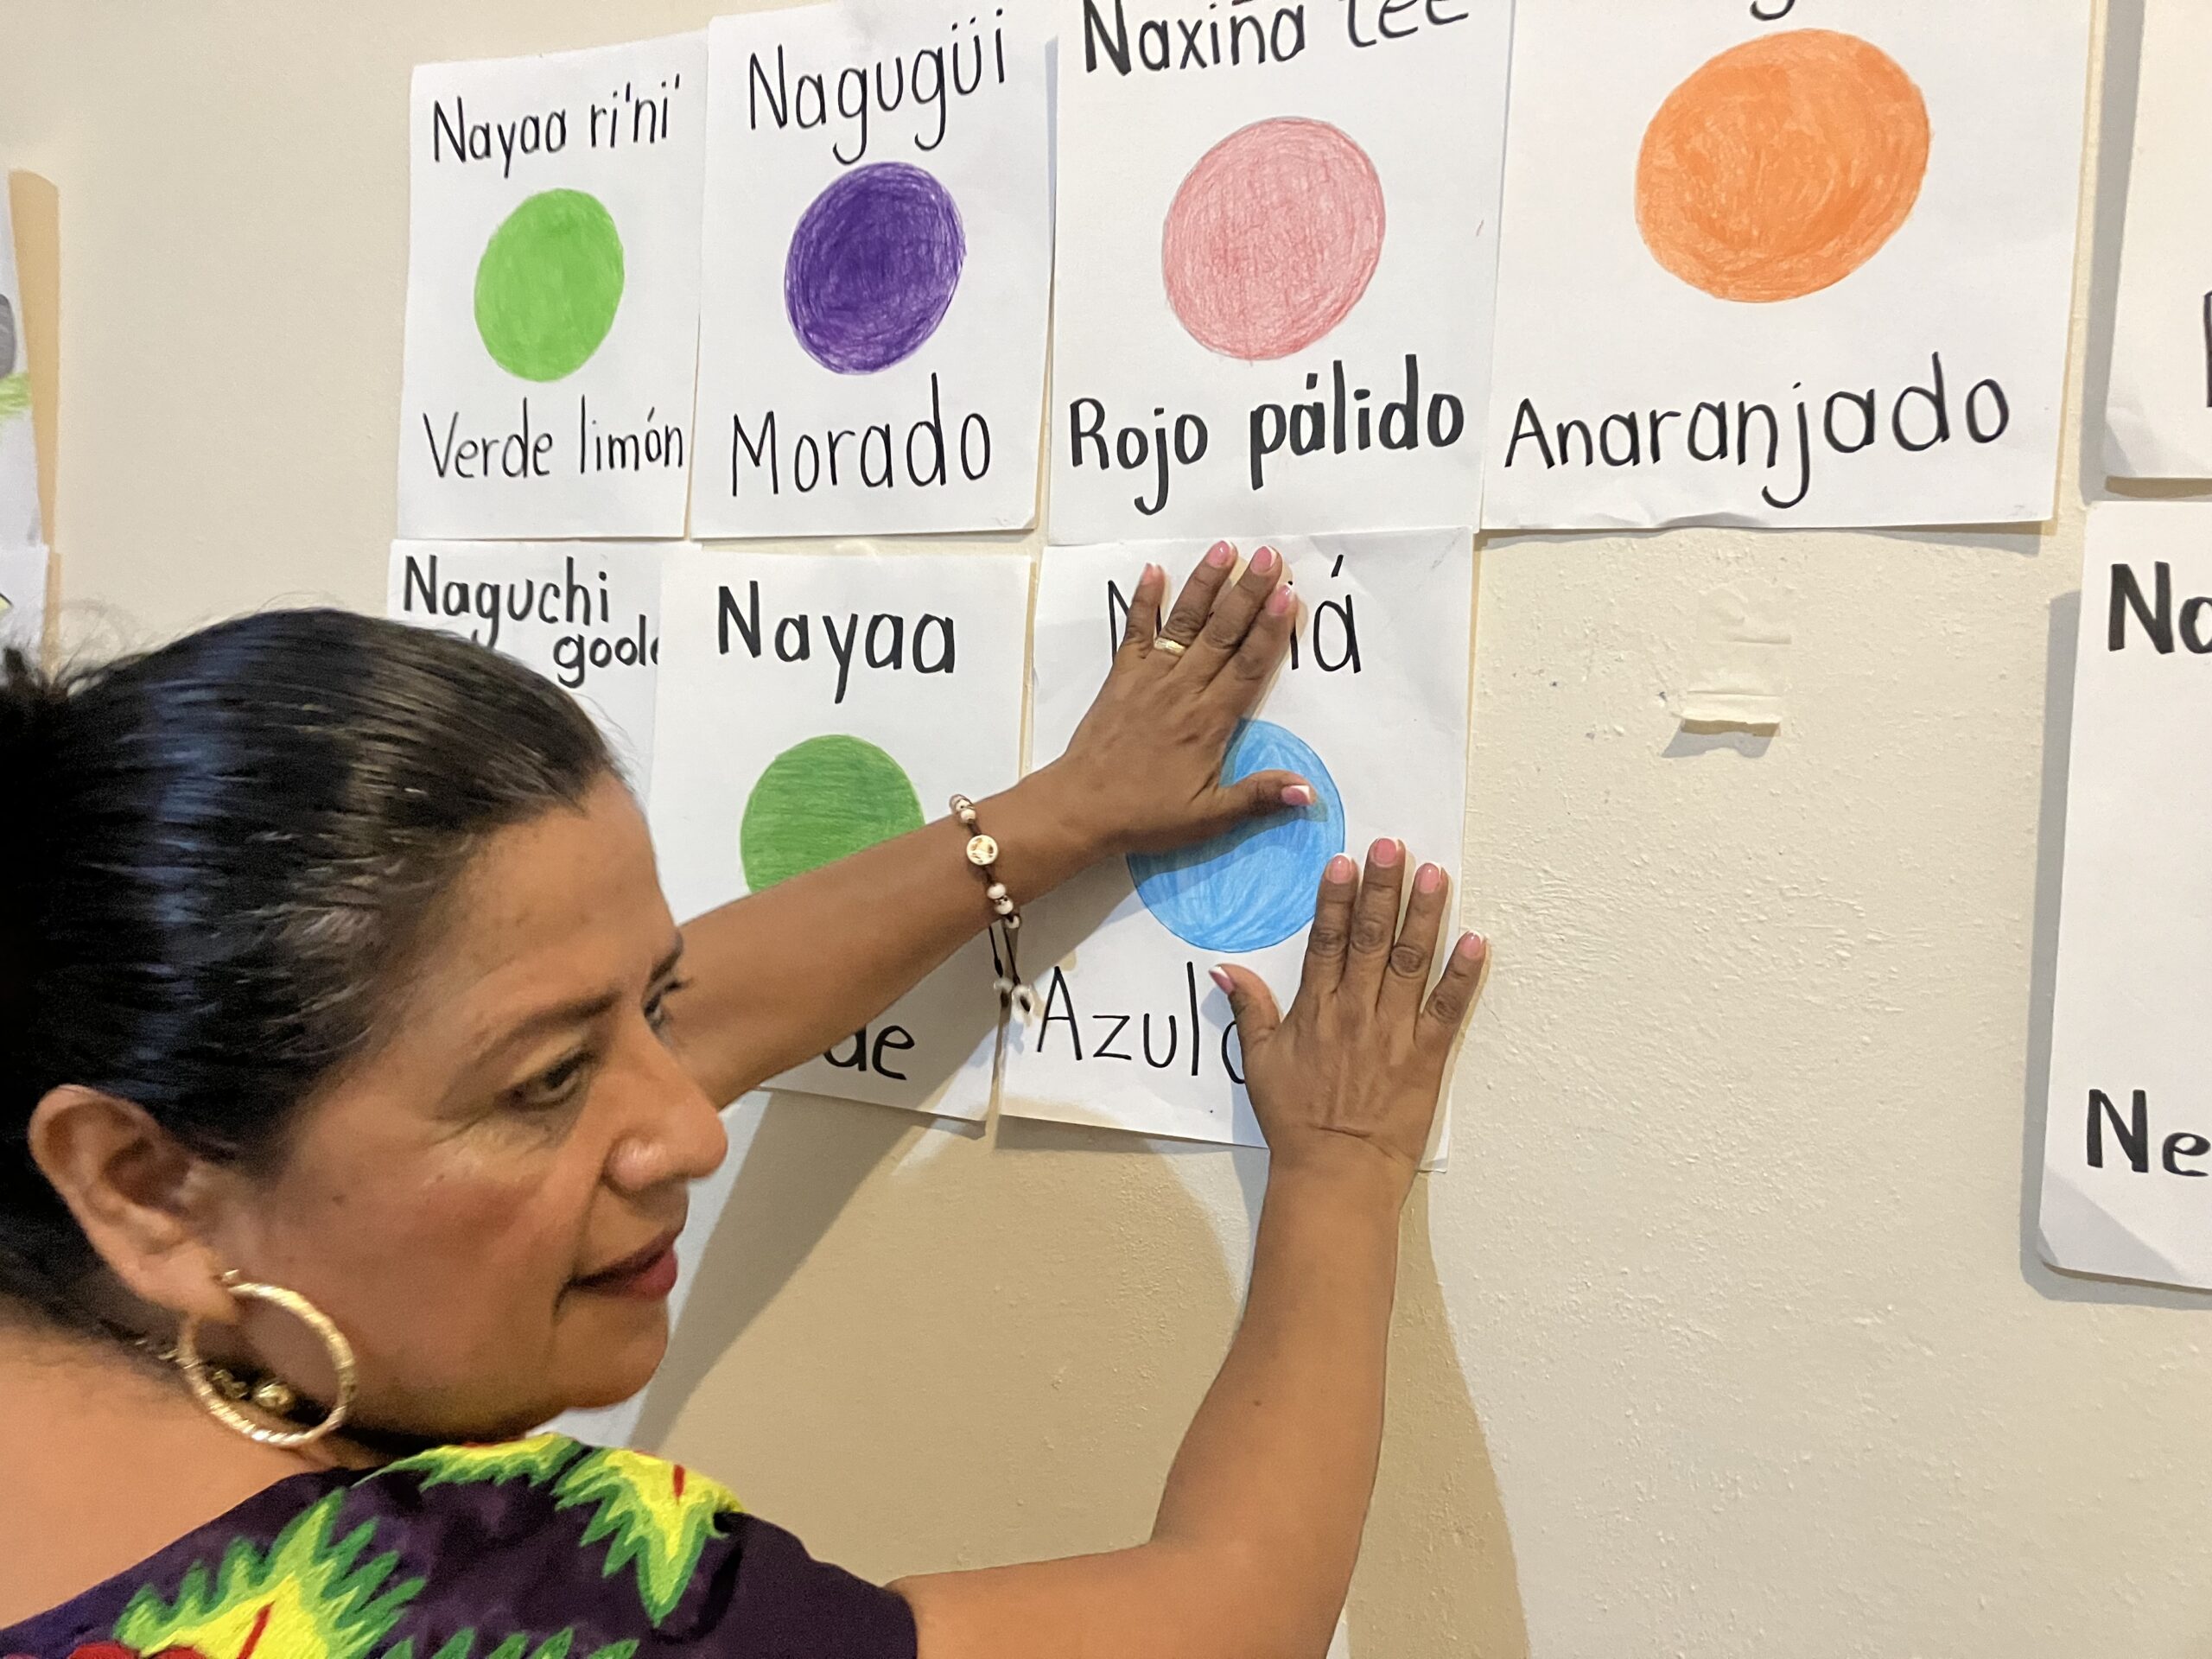 Nayaa ri'ni'
Verde limón
Nagugüi
Morado
Naxiña
Rojo pálido
Anaranjado
Naguchi
Nayaa
Azul